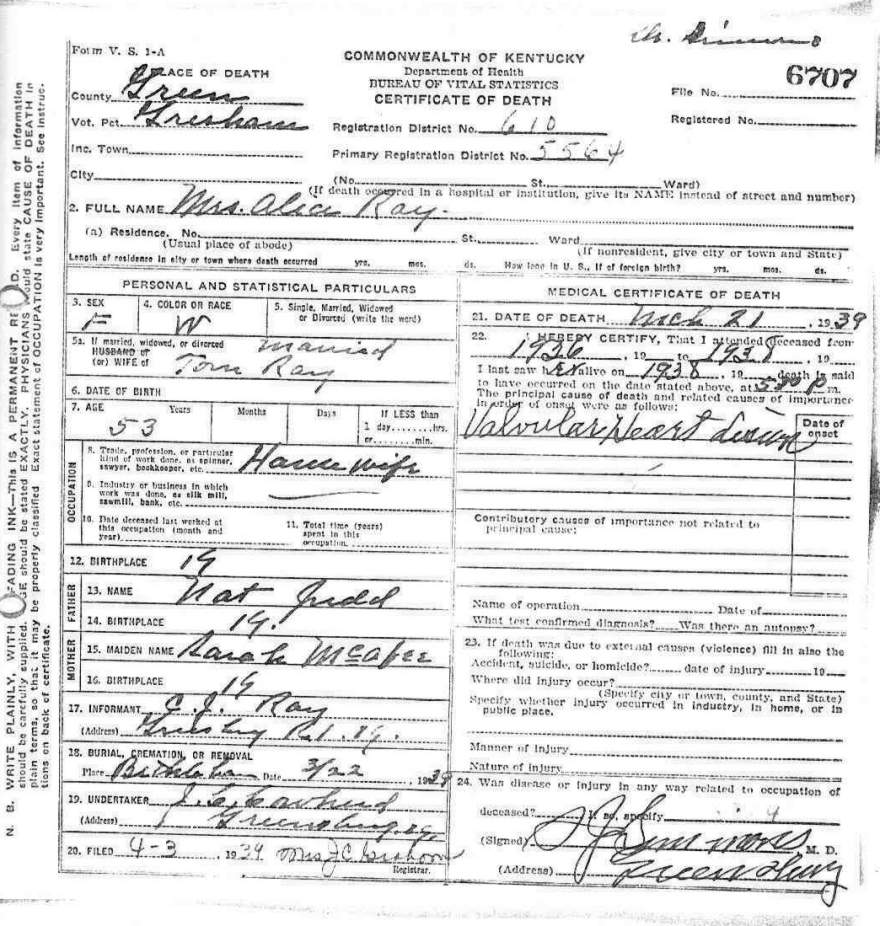 Dr. Simmons
Form V. S. 1-A
6707
COMMONWEALTH OF KENTUCKY
Department of Health
BUREAU OF VITAL STATISTICS
CERTIFICATE OF DEATH
PLACE OF DEATH
County Green
Vot. Pct. Gresham
Inc. Town
City
File No.
Registered No.
Registration District No. 610
Primary Registration District No. 5564
(No. St. Ward)
(If death occurred in a hospital or institution, give its NAME instead of street and number)
2. FULL NAME Mrs. Alice Ray.
(a) Residence. No. St. Ward
(Usual place of abode) (If nonresident, give city or town and State)
Length of residence in city or town where death occurred yrs. mos. ds. How long in U. S., if of foreign birth? yrs. mos. ds.
PERSONAL AND STATISTICAL PARTICULARS
3. SEX F
4. COLOR OR RACE W
5. Single, Married, Widowed
or Divorced (write the word)
Married
5a. If married, widowed, or divorced
HUSBAND of
(or) WIFE of Tom Ray
6. DATE OF BIRTH
7. AGE Years Months Days If LESS than
53 1 day........hrs.
or........min.
OCCUPATION
8. Trade, profession, or particular
kind of work done, as spinner,
sawyer, bookkeeper, etc. House wife
9. Industry or business in which
work was done, as silk mill,
sawmill, bank, etc.
10. Date deceased last worked at
this occupation (month and
year)
11. Total time (years)
spent in this
occupation
12. BIRTHPLACE Ky
FATHER
13. NAME Nat Judd
14. BIRTHPLACE Ky.
MOTHER
15. MAIDEN NAME Sarah McAfee
16. BIRTHPLACE Ky
17. INFORMANT C. J. Ray
(Address) R.1. Ky.
18. BURIAL, CREMATION, OR REMOVAL
Place Date 3/22, 1939
19. UNDERTAKER J. C.
(Address) Greensburg, Ky
20. FILED 4-3 1939 Mrs J C
Registrar.
MEDICAL CERTIFICATE OF DEATH
21. DATE OF DEATH Mch 21, 1939
22. I HEREBY CERTIFY, That I attended deceased from
1936, 19 to 1938, 19
I last saw her alive on 1938, 19 death is said
to have occurred on the date stated above, at 5:00 P m.
The principal cause of death and related causes of importance
in order of onset were as follows:
Date of
onset
Valvular Heart
Contributory causes of importance not related to
principal cause:
Name of operation Date of
What test confirmed diagnosis? Was there an autopsy?
23. If death was due to external causes (violence) fill in also the
following:
Accident, suicide, or homicide? date of injury 19
Where did injury occur?
(Specify city or town, county, and State)
Specify whether injury occurred in industry, in home, or in
public place.
Manner of injury
Nature of injury
24. Was disease or injury in any way related to occupation of
deceased? If so, specify
(Signed) S J Simmons, M. D.
(Address) Greensburg
N. B. WRITE PLAINLY, WITH FADING INK—This IS A PERMANENT RE D. Every item of information
should be carefully supplied. GE should be stated EXACTLY. PHYSICIANS should state CAUSE OF DEATH in
plain terms, so that it may be properly classified. Exact statement of OCCUPATION is very important. See instruc-
tions on back of certificate.